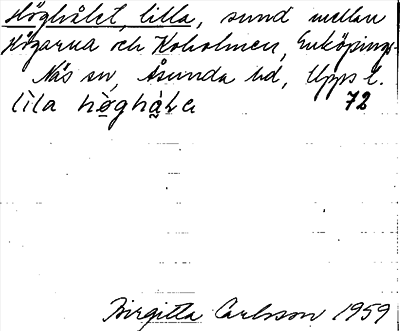 Höghålet, lilla, sund mellan
Högarna och Koholmen, Enköpings-
Näs sn, Åsunda hd, Upps l.
lìla hö̀ghà̰Lе 72
Birgitta Carlsson 1959